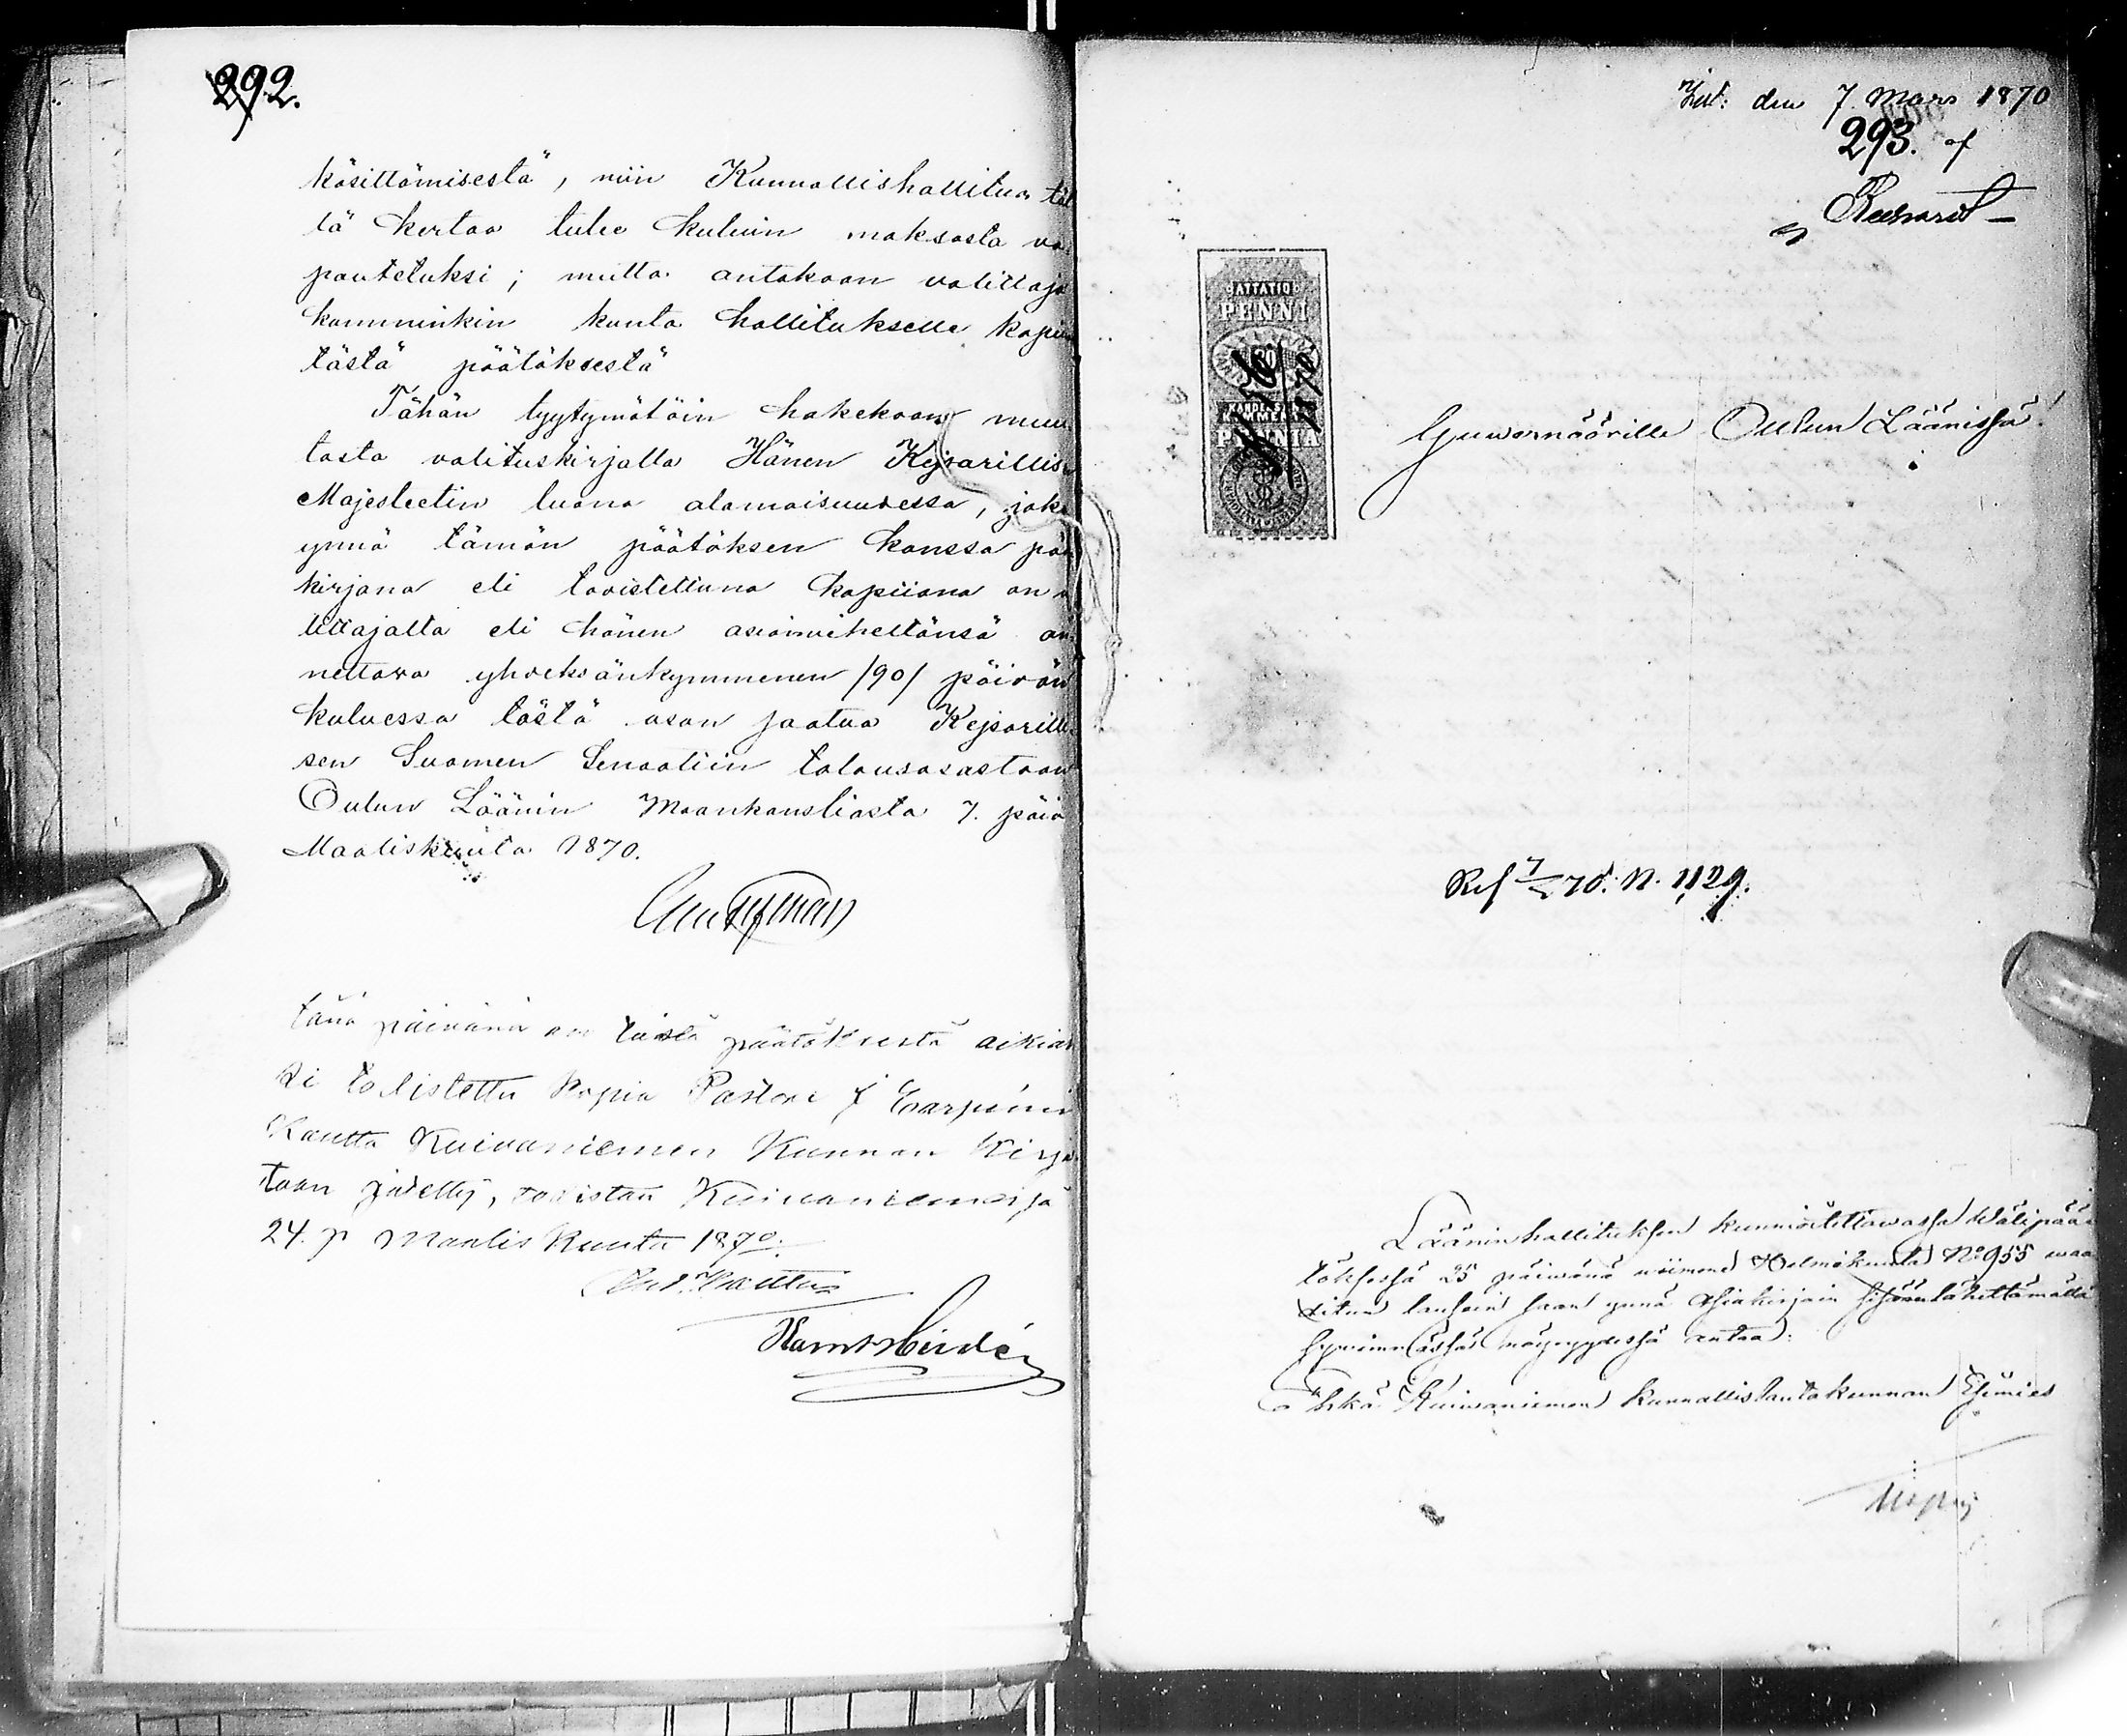 292.
käsittämisestä, niin Kunnallishallitus täl
tä kertaa tulee kuluin maksosta va
pautetuksi; mutta antakoon valittaja
kumminkin kunta hallitukselle kopiia
tästä päätöksestä
Tähän tyytymätöin hakekoon muu
tosta valituskirjalla Hänen Kejsarillisen
Majesteetin luona alamaisuudessa, joka
ynnä tämän päätöksen kanssa pää
kirjana eli tovistettuna kopiiana on va
littajalta eli hänen asiamieheltänsä an
nettava yhdeksänkymmenen /90/ päivän
kuluessa tästä asan saatua Kejsarilli
sen Suomen Senaatiin talousosastoon
Oulun Läänin Maankansliasta 7. päiv
Maaliskuuta 1870.
tänä päivänä on tästä päätöksestä oikiak
si todistettu kopia Pastori J
Kautta Kuivaniemen Kunnan Kirja
toon jätetty, todistaa Kuivaniemessä
24. p Maalis Kuuta 1870.
Inl: den 7. Mars 1870
293. af
ATTATIO
PENNI
PENNIÄ
1870
Guvernöörille Oulun Läänissä!
N. 1129.
Lääninhallituksen kunnioitettavassa Välipää
töksessä 25 päivänä viimene Helmikuuta No 955 vaa
ditun lausein saan ynnä Asiakirjain sisäänlähettämällä
syvimmässä nöyryydessä antaa:
Kuivaniemen Kunnallislautakunnan Esimies